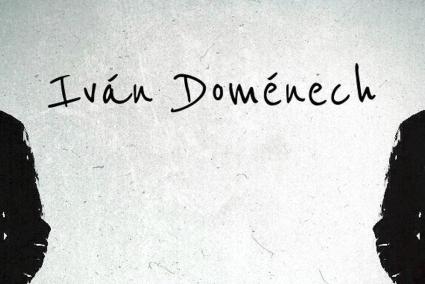 Iván Doménech